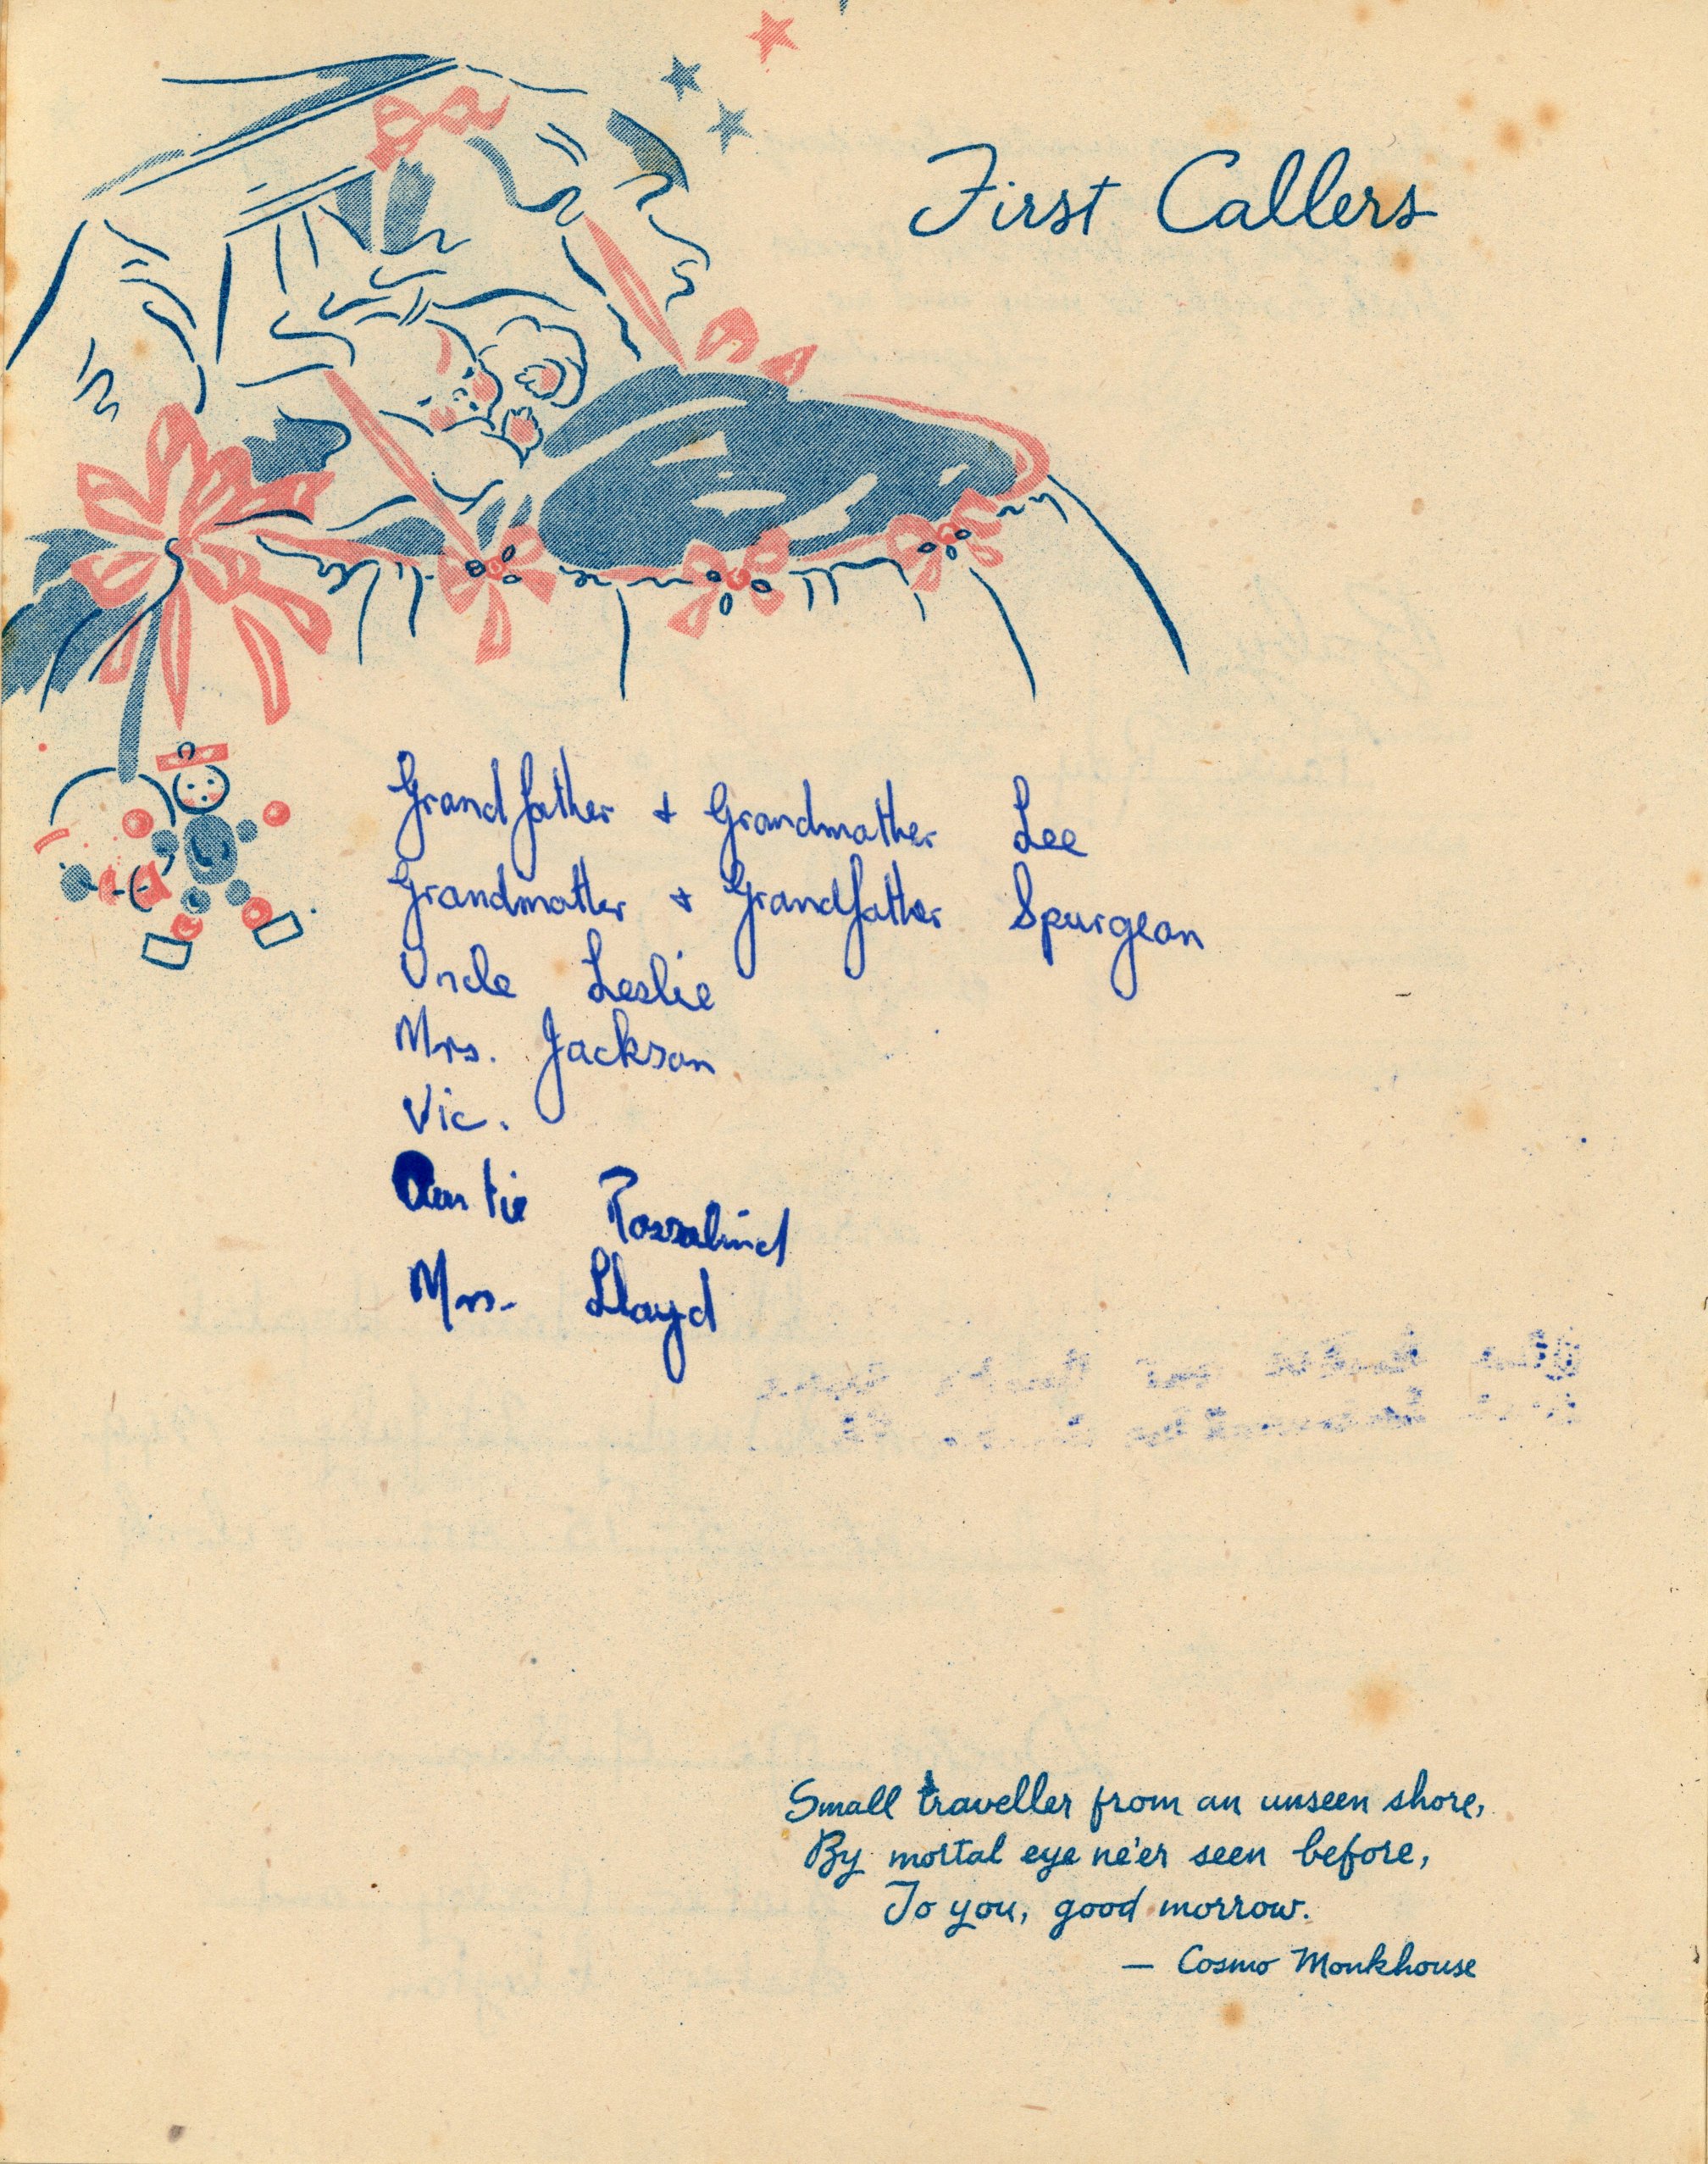 First Callers
Grandfather + Grandmother Lee
Grandmother + Grandfather Spurgeon
Uncle Leslie
Mrs. Jackson
Vic.
Auntie Rossalind
Mrs. Lloyd
Small traveller from an unseen shore,
By mortal eye ne'er seen before,
To you, good morrow.
— Cosmo Monkhouse